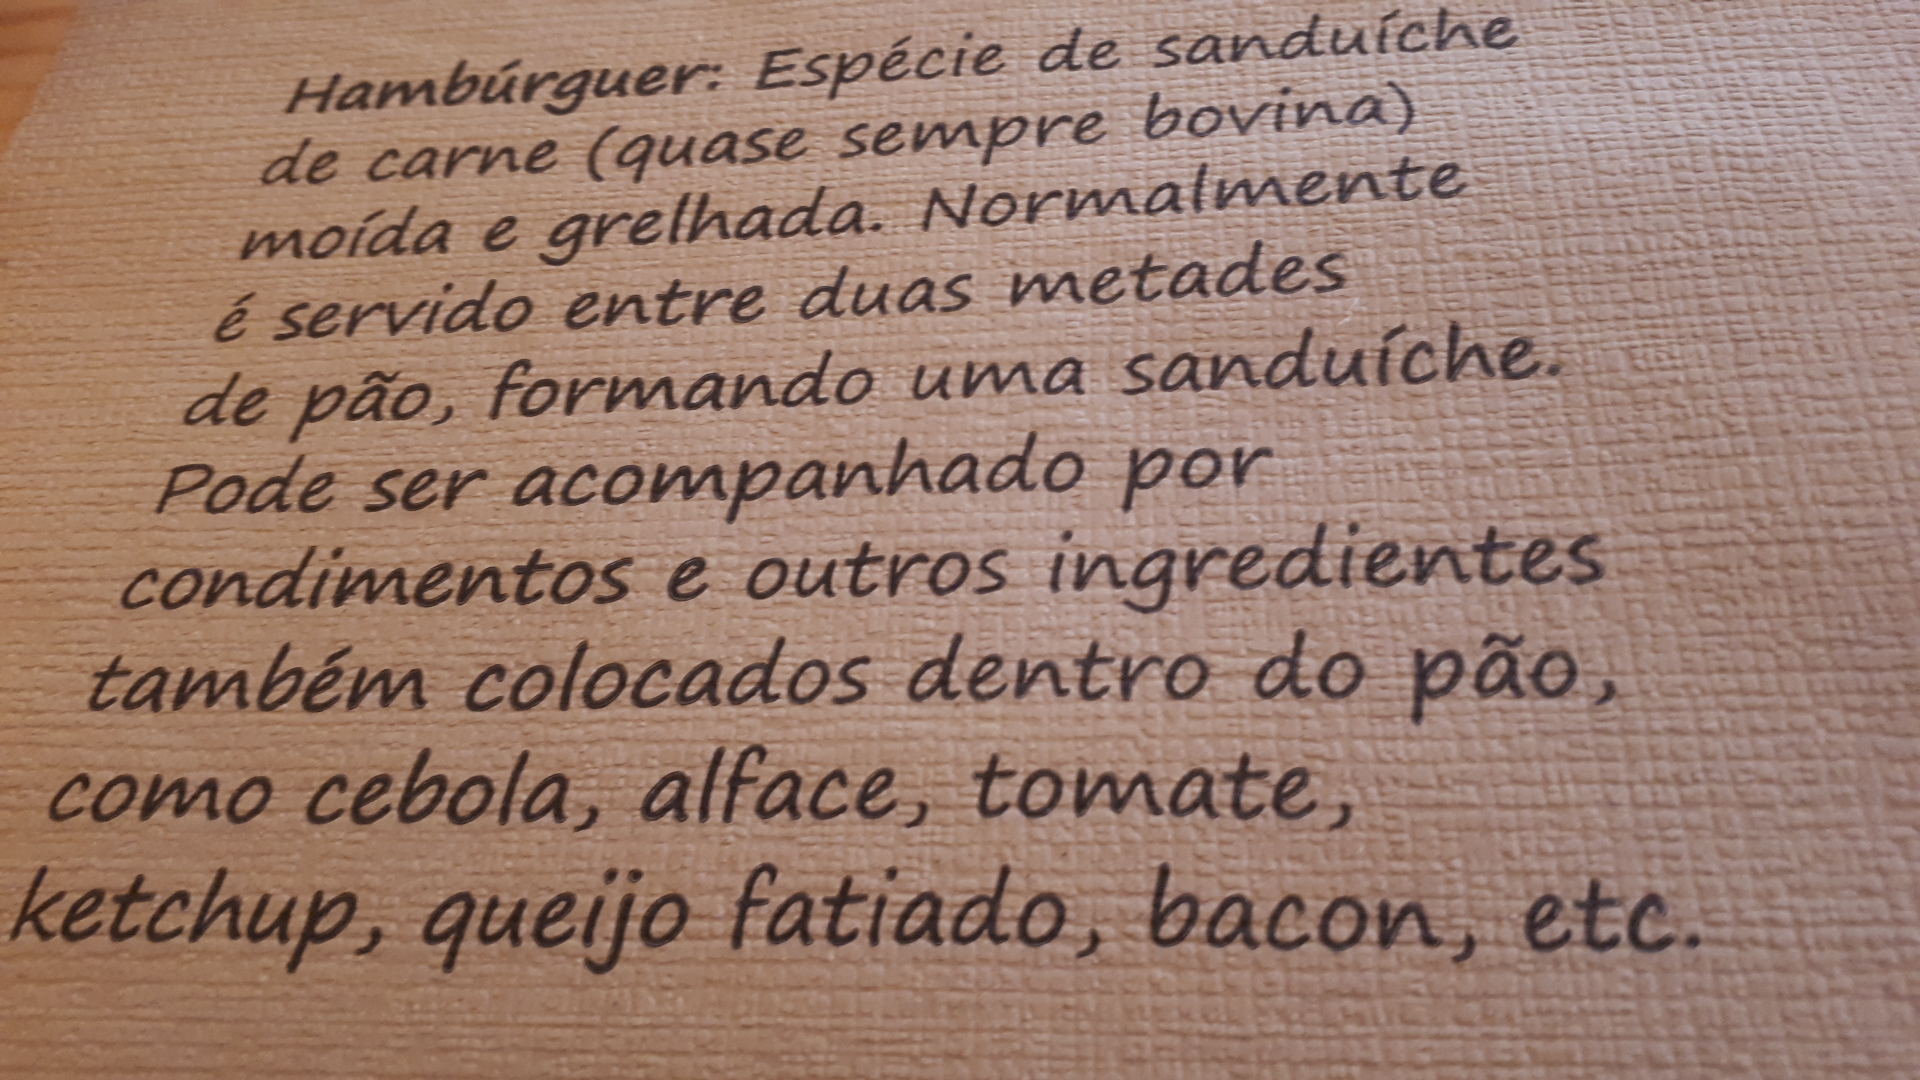 Hambúrguer: Espécie de sanduíche
de carne (quase sempre bovina)
moída e grelhada. Normalmente
é servido entre duas metades
de pão, formando uma sanduíche.
Pode ser acompanhado por
condimentos e outros ingredientes
também colocados dentro do pão,
como cebola, alface, tomate,
ketchup, queijo fatiado, bacon, etc.